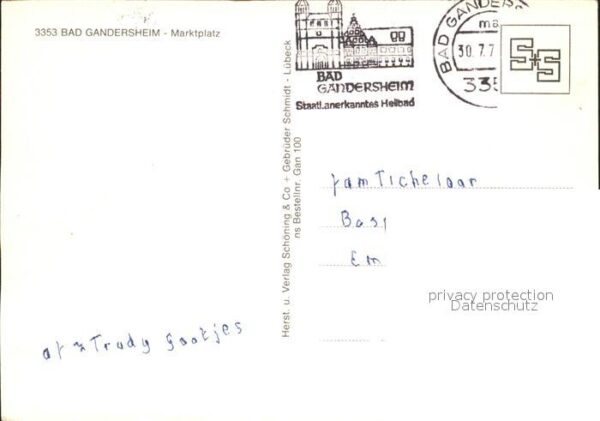 3353 BAD GANDERSHEIM - Marktplatz
BAD
GANDERSHEIM
Staatl.anerkanntes Heilbad
BAD GANDERS
30.7.7
335
S+S
Herst. u. Verlag Schöning & Co + Gebrüder Schmidt - Lübeck
ns Bestellnr. Gan 100
fam Tichelaar
Em
privacy protection
Datenschutz
Trudy Gootjes